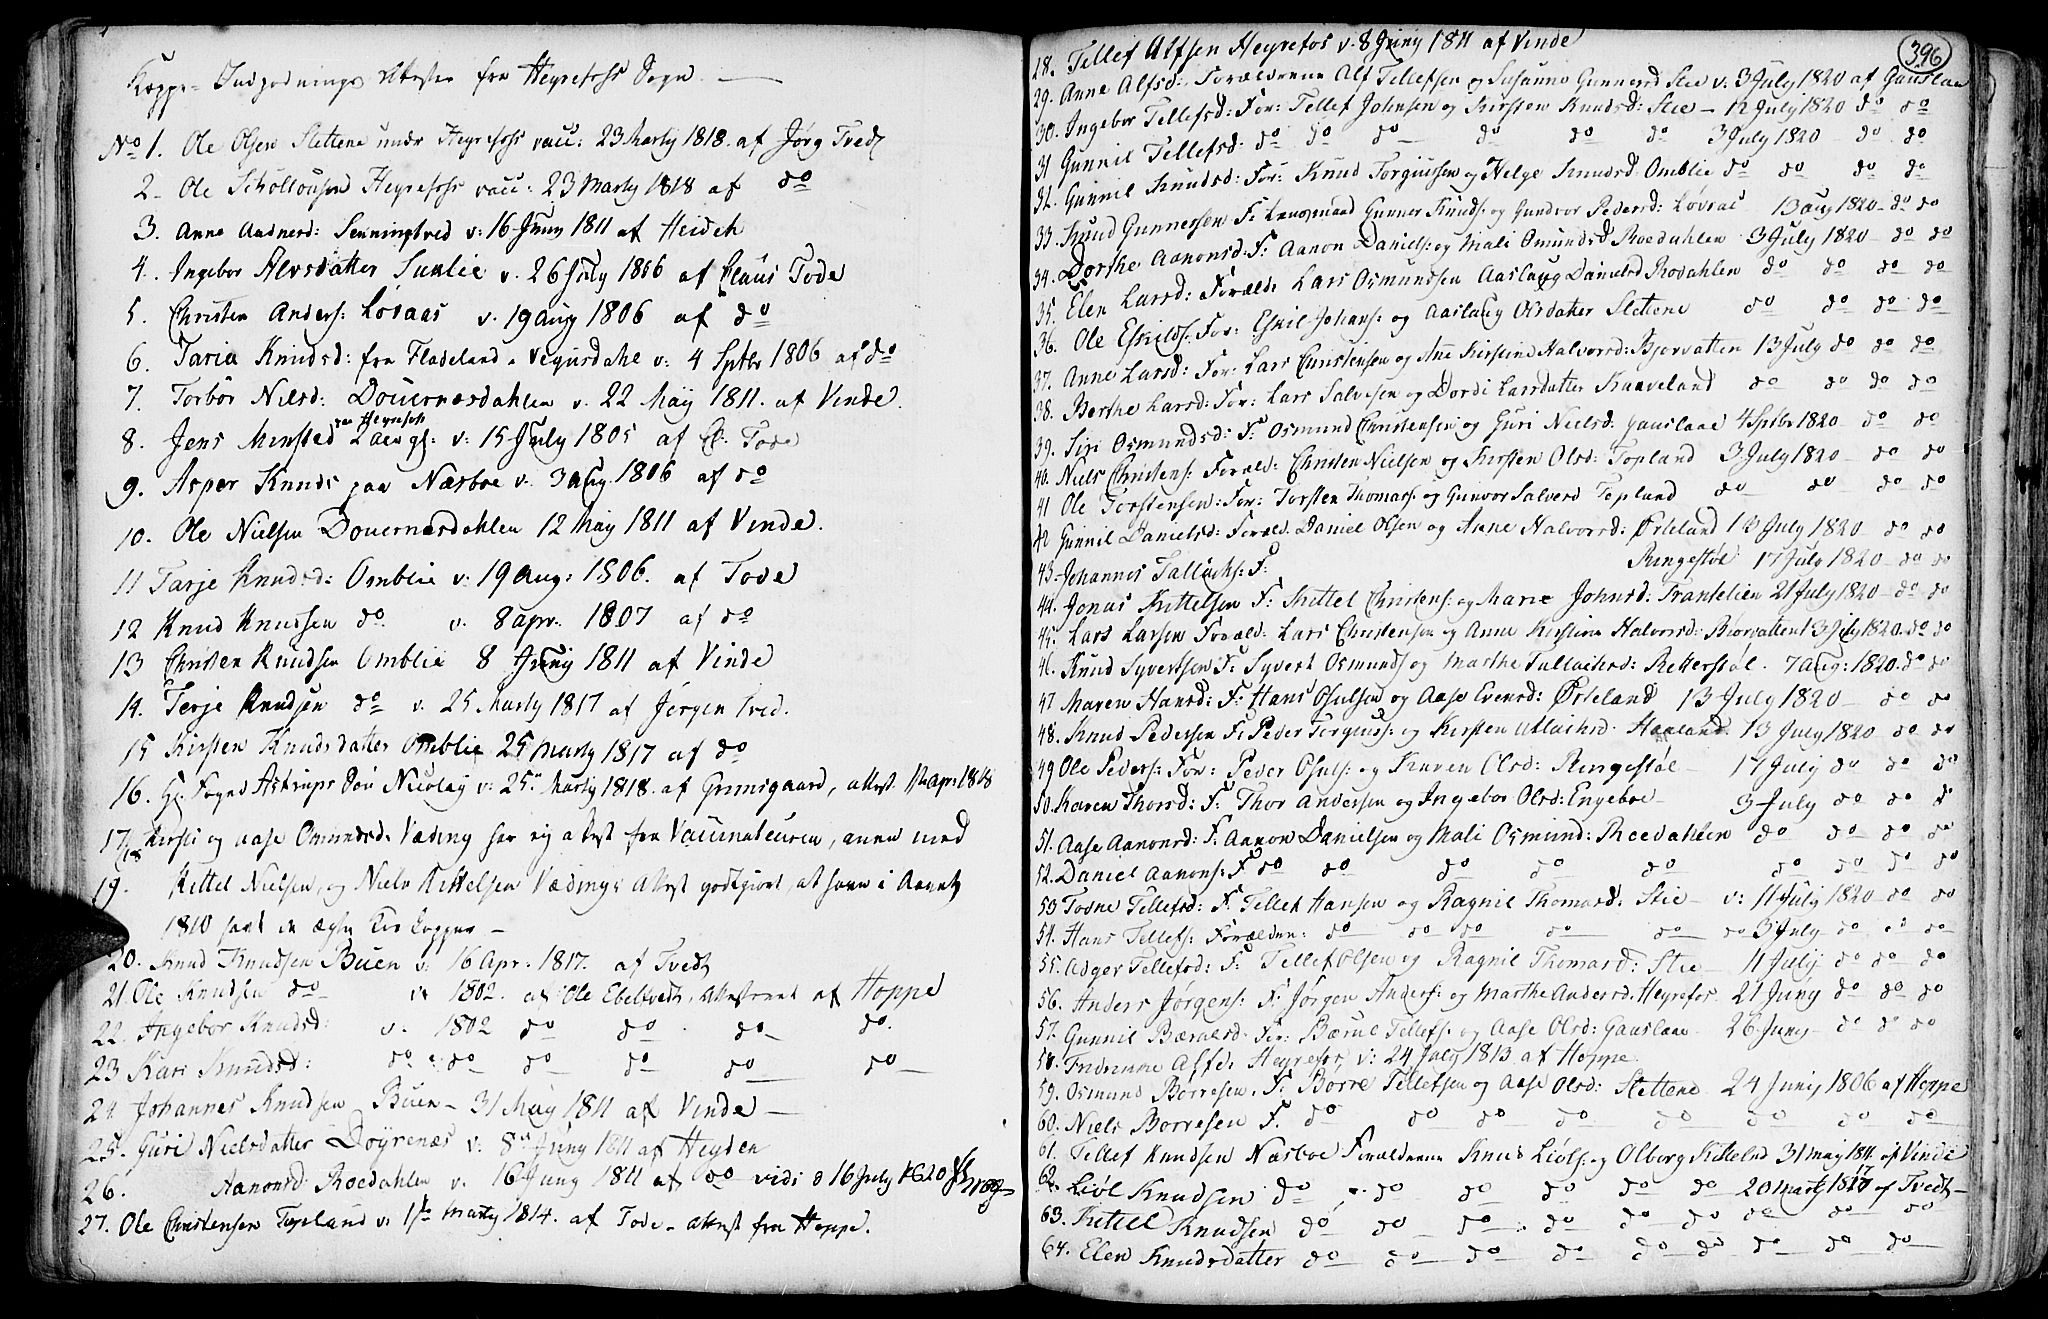 Koppe-Indpodnings Attester fra Heyrefoss Sogn.
No 1. Ole Olsen Slettene under Heyrefoss vacc: 23 Marty 1818. af Jørg Tvedt
2- Ole Heyrefoss vacc: 23 Marty 1818 af do
3. Anne Aadnerd: v: 16 Juny 1811 af Heideh
4. Ingebor Alvsdatter v. 26 July 1806 af Claus Tode
5. Christen Anders: Løvaas v. 19 Aug 1806 af do
6. Taria Knudsd: fra Fladeland - Vegusdahl v: 4 Sptbr 1806 af do
7. Torbør Nilsd: Douernæsdahlen v. 22 May 1811. af Vinde.
8. Jens Minsted paa Heyrefoss v: 15 July 1805 af Cl. Tode
9. Asper Knuds paa Næsboe v. 3 Aug. 1806 af do
10. Ole Nielsen Douernæsdahlen 12 May 1811 af Vinde.
11 Tarje Knudsd: Omblie v: 19 Aug: 1806. af Tode
12 Knud Knudsen do v. 8 apr. 1807 af do
13 Christen Knudsen Omblie 8 Juny 1811 af Vinde
14. Terje Knudsen do v. 25 Marty 1817 af Jørgen Tved.
15 Kirsten Knudsdatter Omblie 25 Marty 1817 af do
16. Hr. Foged Astrups Søn Nicolay v: 25 Marty 1818. af Grimsgaard, attest apr: 1818
17/18 Kirsti og Aase Omundsd: Væding har ey attest fra Vaccinateuren, men med
19. Kittel Nielsen, og Niels Kittelsen Vædings Attest godtgiort, at have i Aaret
1810 havt de ægte Koe kopper -
20. Knud Knudsen Buen v: 16 Apr. 1817. af Tvedt
21. Ole Knudsen do v: 1802. af Ole Ebeltvedt, Attesteret af Hoppe
22. Ingebor Knudsd: v. 1802 do do do do.
23 Kari Knudsd: do do do do do do
24. Johannes Knudsen Buen - 31 May 1811 af Vinde -
25. Guri Nielsdatter Døyrenæs v: 8 Juny 1811 af Heyden
26. Aanonsd: Roedahlen v. 16 Juny 1811 af do vidi d 16 July 1820
27. Ole Christensen Topland v: Marty 1814. af Tode - attest fra Hoppe.
396
28. Tellef Alfsen Heyrefos v. 8 Juny 1811 af Vinde
29. Anne Alfsd: Forælderne Alf Tellefsen og Susanne Gunnersd Stie v: 3 July 1820 af Gauslaa
30. Ingebor Tellefsd: For: Tellef Johnsen og Kirsten Knudsd: Stie - 12 July 1820 do do
31 Gunnil Tellefsd: do do do do do do 3 July 1820 do do
32. Gunnil Knudsd: For: Knud Torgiusen og Helge Knudsd. Omblie do do do do
33. Knud Gunnersen F: Lensmand Gunner Knuds: og Gundvor Pedersd: Løvaas 13 aug 1820 - do do
34. Dorthe Aanonsd: F: Aanon Daniels: og Mali Omundsd Roedahlen 3 July 1820 - do do
35. Elen Larsd: Foræld: Lars Osmundsen Aaslaug Danielsd Roedahlen do do do do
36. Ole Eskilds: For: Eskil Johans: og Aaslaug Olsdatter Slettene do do do do
37. Anne Larsd: For: Lars Christensen og Anne Kirstine Halvorsd: Bjorvatten 13 July do do do
38. Berthe Larsd: For: Lars Salvesen og Dordi Larsdatter Kaaveland do do do do
39. Siri Osmundsd: F: Osmund Christensen og Guri Nielsd. Gauslaae 4 Sptbr 1820 do do
40. Niels Christens: Foræld: Christen Nielsen og Kirsten Olsd: Topland 3 July 1820 - do do
41 Ole Torstensen: For: Torsten Thomas: og Gunvor Salvesd Topland do do do do
42 Gunnil Danielsd: Foræld. Daniel Olsen og Anne Halvorsd: Ørleland 13 July 1820 - do do
43. Johannes Tallachs: F: Ringestøl 17 July 1820 - do do
44. Jonas Kittelsen F: Kittel Christens: og Marie Johnsd: Trantelien 21 July 1820 - do do
45. Lars Larsen Foræld: Lars Christensen og Anne Kirstine Halvorsd: Biorvatten 13 July 1820. do do
46. Knud Syvertsen F: Syvert Osmunds og Marthe Tallachsd: Retterstøl. 7 Aug: 1820. do do
47 Maren Hansd: F: Hans Osulsen og Aase Evensd: Ørleland 13 July 1820 - do do
48. Knud Pedersen F: Peder Torgiuss: og Kirsten Atlachsd. Haaland. 13 July 1820 do do
49 Ole Peders: For: Peder Osuls: og Karen Olsd: Ringestøl - 17 July do do do
50. Karen Thorsd: F: Thor Andersen og Ingebor Olsd: Engeboe - 3 July do do do
51. Aase Aanonsd: F: Aanon Danielsen og Mali Osmund: Roedahlen do do do do
52. Daniel Aanons: F do do do do do do do do do
53 Tovne Tellefsd: F. Tellef Hansen og Ragnil Thomasd: Stie - v: 11 July 1820 do do
54. Hans Tellefs: Forældre: do do do do do do 3 July do do do
55. Adger Tellefsd: F: Tellef Olsen og Ragnil Thomasd: Stie - 11 July do do do
56. Anders Jørgens: F: Jørgen Anders: og Marthe Andersd. Heyrefos. 21 Juny do do do
57. Gunnil Bærulsd: For: Bærul Tellefs: og Aase Olsd: Gauslaae. 26 Juny - do do do
58. Alfsd: Heyrefos, v: 24 July 1813 af Hoppe.
59. Osmund Børresen. F: Børre Tellefsen og Aase Olsd: Slettene 24 Juny 1806 af Hoppe
60. Niels Børresen F. do do do do do do do do
61. Tellef Knudsen Næsboe Forælderne Knud Liøls: og Olborg Kittelsd 31 may 1811 af Vinde
62. Liøl Knudsen do do do do do do 20 Marty 1817 af Tvedt -
63. Kittel Knudsen do do do do do do do do do
64. Elen Knudsdatter do do do do do do do do